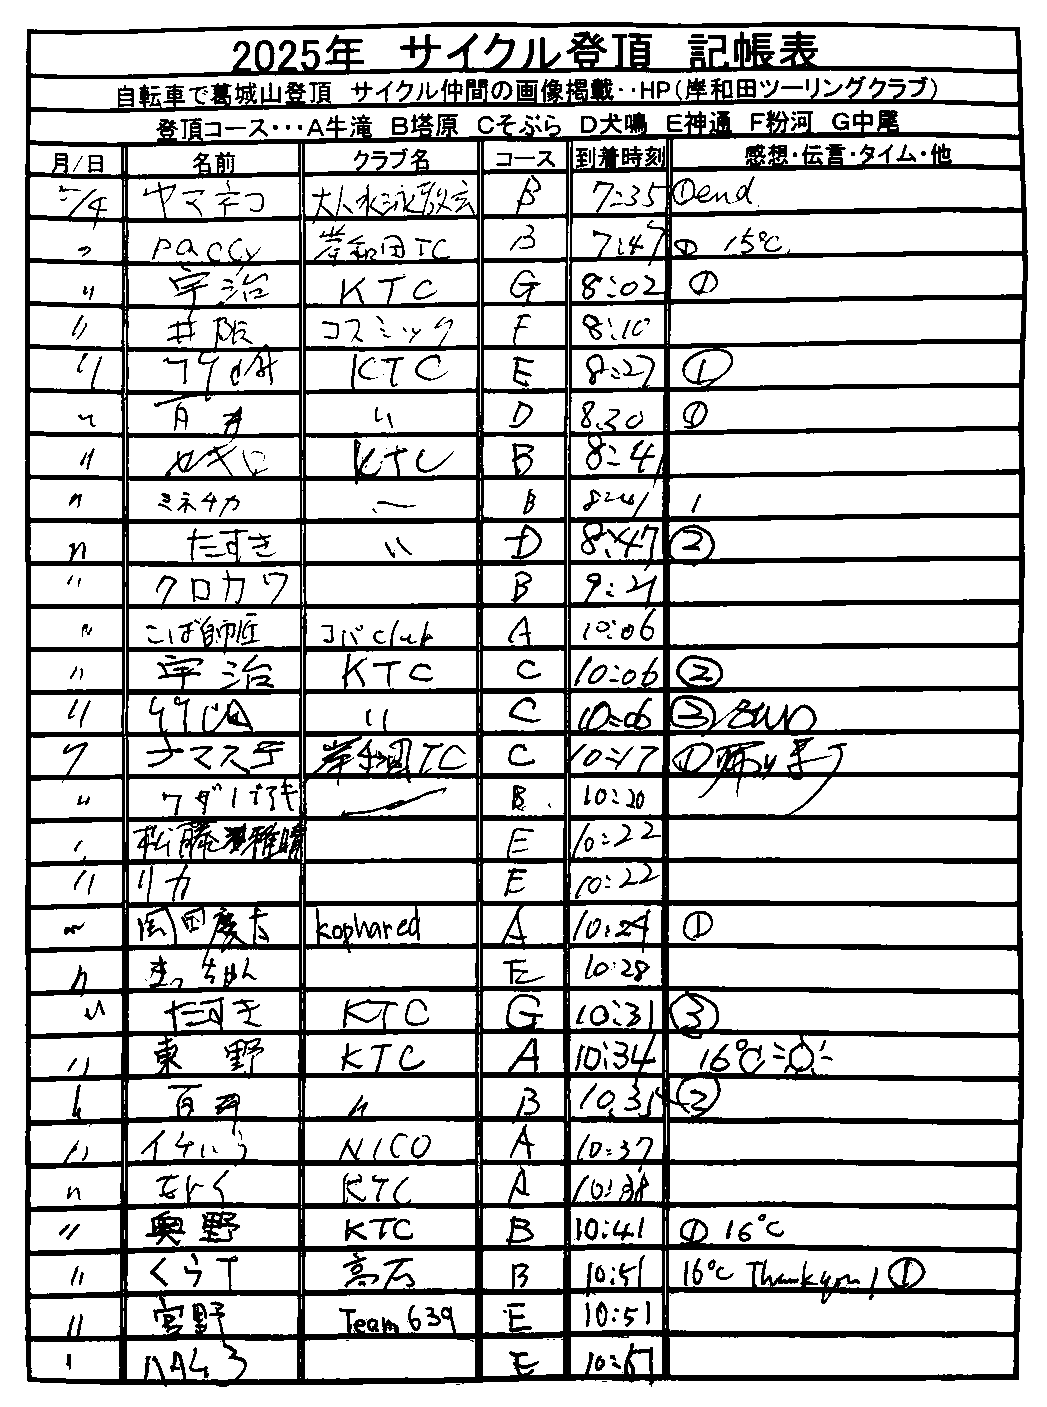 2025年 サイクル登頂 記帳表
自転車で葛城山登頂 サイクル仲間の画像掲載‥HP(岸和田ツーリングクラブ)
登頂コース・・・A牛滝 B塔原 Cそぶら D犬鳴 E神通 F粉河 G中尾
月/日 名前 クラブ名 コース 到着時刻 感想・伝言・タイム・他
5/4 ヤマネコ B 7:35 ①end
〃 paccy 岸和田TC B 7:47 ① 15℃
〃 宇治 KTC G 8:02 ①
〃 井阪 コスミック F 8:10
〃 KTC E 8:27 ①
〃 百井 〃 D 8:30 ①
〃 セキロ KTC B 8:41
〃 ミネチカ ー B 8:41 1
〃 たすき 〃 D 8:47 ②
〃 クロカワ B 9:21
〃 こば師匠 コバclub A 10:06
〃 宇治 KTC C 10:06 ②
〃 〃 C 10:06 ③
〃 ナマステ 岸和田TC C 10:17 ①
〃 B 10:20
〃 E 10:22
〃 リカ E 10:22
〃 岡田慶太 kophared A 10:24 ①
〃 まっちゃん E 10:28
〃 たすき KTC G 10:31 ③
〃 東野 KTC A 10:34 16℃
〃 百井 〃 B 10:35 ②
〃 NICO A 10:37
〃 KTC A 10:38
〃 奥野 KTC B 10:41 ① 16℃
〃 くらT 高石 B 10:51 16℃ Thankyou! ①
〃 宮野 Team639 E 10:51
〃 E 10:57